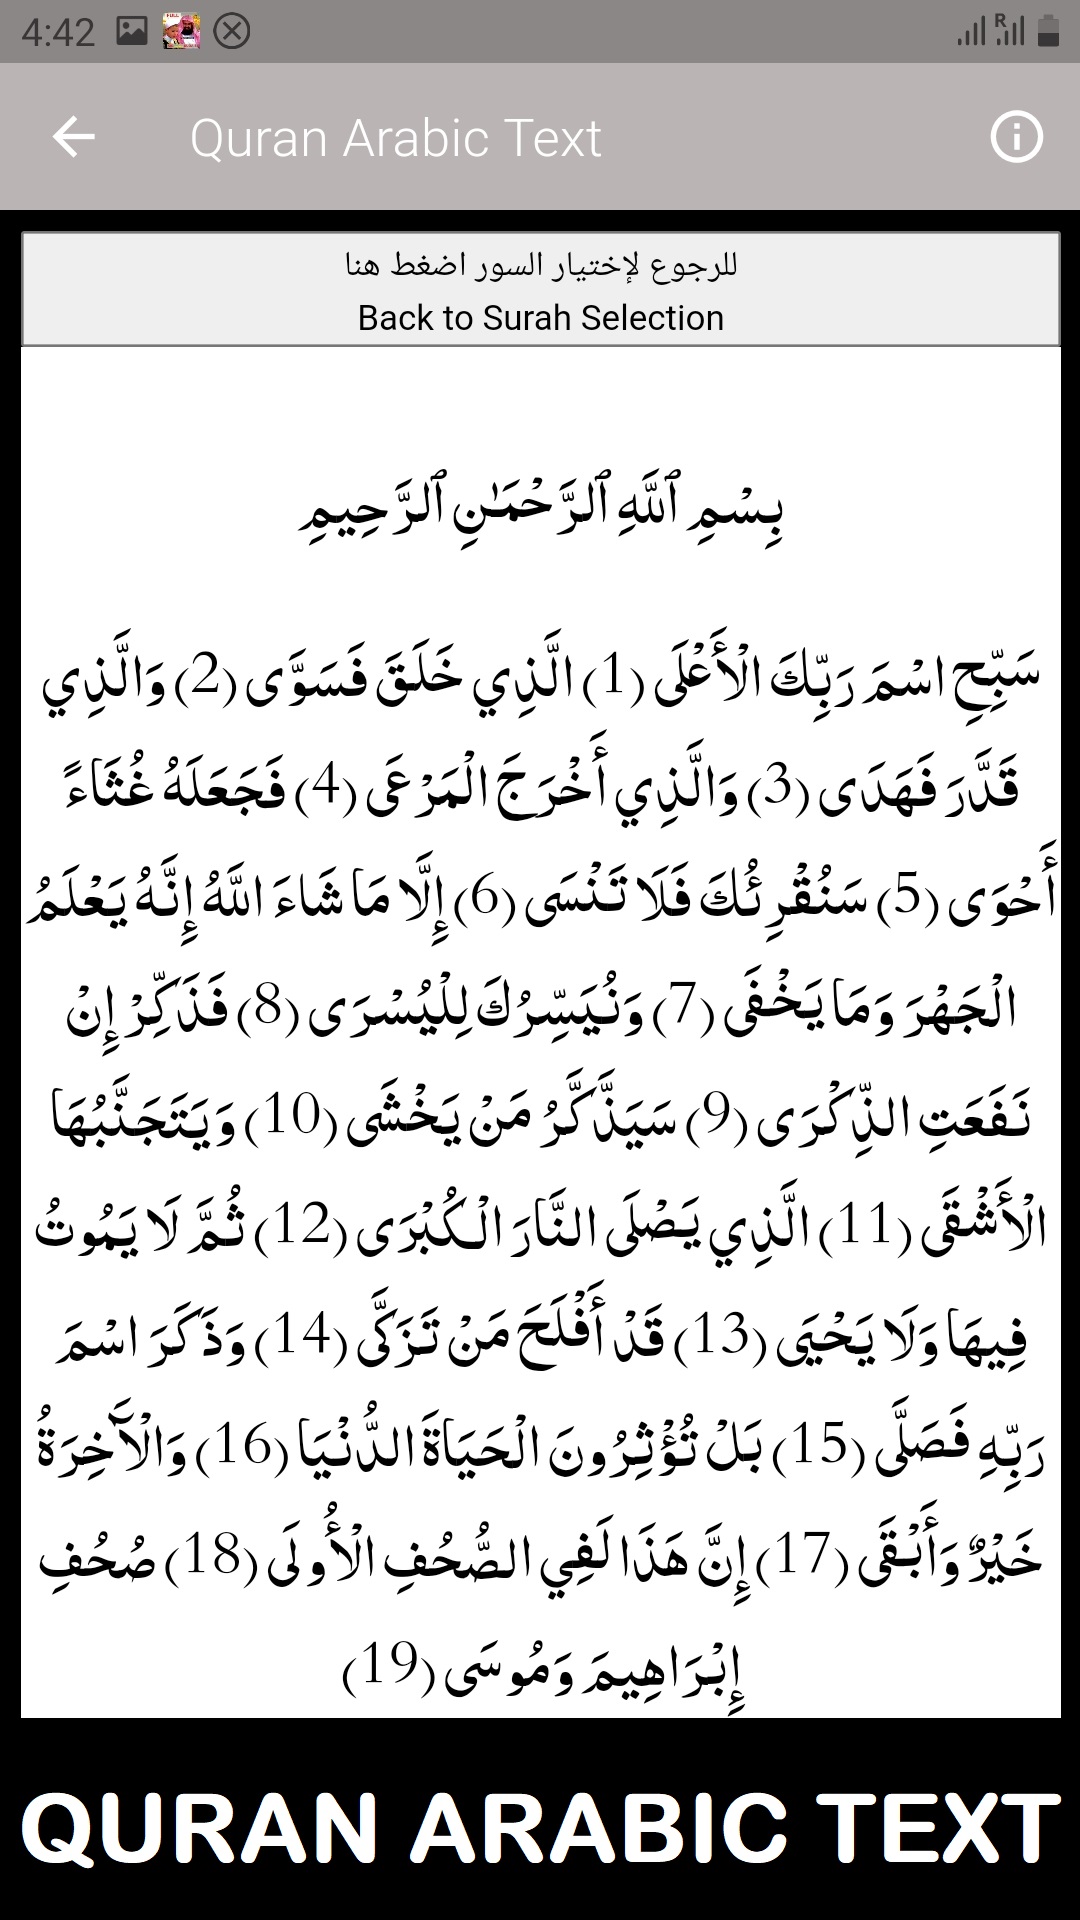 4:42
R
Quran Arabic Text
للرجوع لإختيار السور اضغط هنا
Back to Surah Selection
بِسْمِ ٱللَّهِ ٱلرَّحْمَـٰنِ ٱلرَّحِيمِ
سَبِّحِ اسْمَ رَبِّكَ الْأَعْلَى (1) الَّذِي خَلَقَ فَسَوَّى (2) وَالَّذِي
قَدَّرَ فَهَدَى (3) وَالَّذِي أَخْرَجَ الْمَرْعَى (4) فَجَعَلَهُ غُثَاءً
أَحْوَى (5) سَنُقْرِئُكَ فَلَا تَنْسَى (6) إِلَّا مَا شَاءَ اللَّهُ إِنَّهُ يَعْلَمُ
الْجَهْرَ وَمَا يَخْفَى (7) وَنُيَسِّرُكَ لِلْيُسْرَى (8) فَذَكِّرْ إِنْ
نَفَعَتِ الذِّكْرَى (9) سَيَذَّكَّرُ مَنْ يَخْشَى (10) وَيَتَجَنَّبُهَا
الْأَشْقَى (11) الَّذِي يَصْلَى النَّارَ الْكُبْرَى (12) ثُمَّ لَا يَمُوتُ
فِيهَا وَلَا يَحْيَى (13) قَدْ أَفْلَحَ مَنْ تَزَكَّى (14) وَذَكَرَ اسْمَ
رَبِّهِ فَصَلَّى (15) بَلْ تُؤْثِرُونَ الْحَيَاةَ الدُّنْيَا (16) وَالْآَخِرَةُ
خَيْرٌ وَأَبْقَى (17) إِنَّ هَذَا لَفِي الصُّحُفِ الْأُولَى (18) صُحُفِ
إِبْرَاهِيمَ وَمُوسَى (19)
QURAN ARABIC TEXT